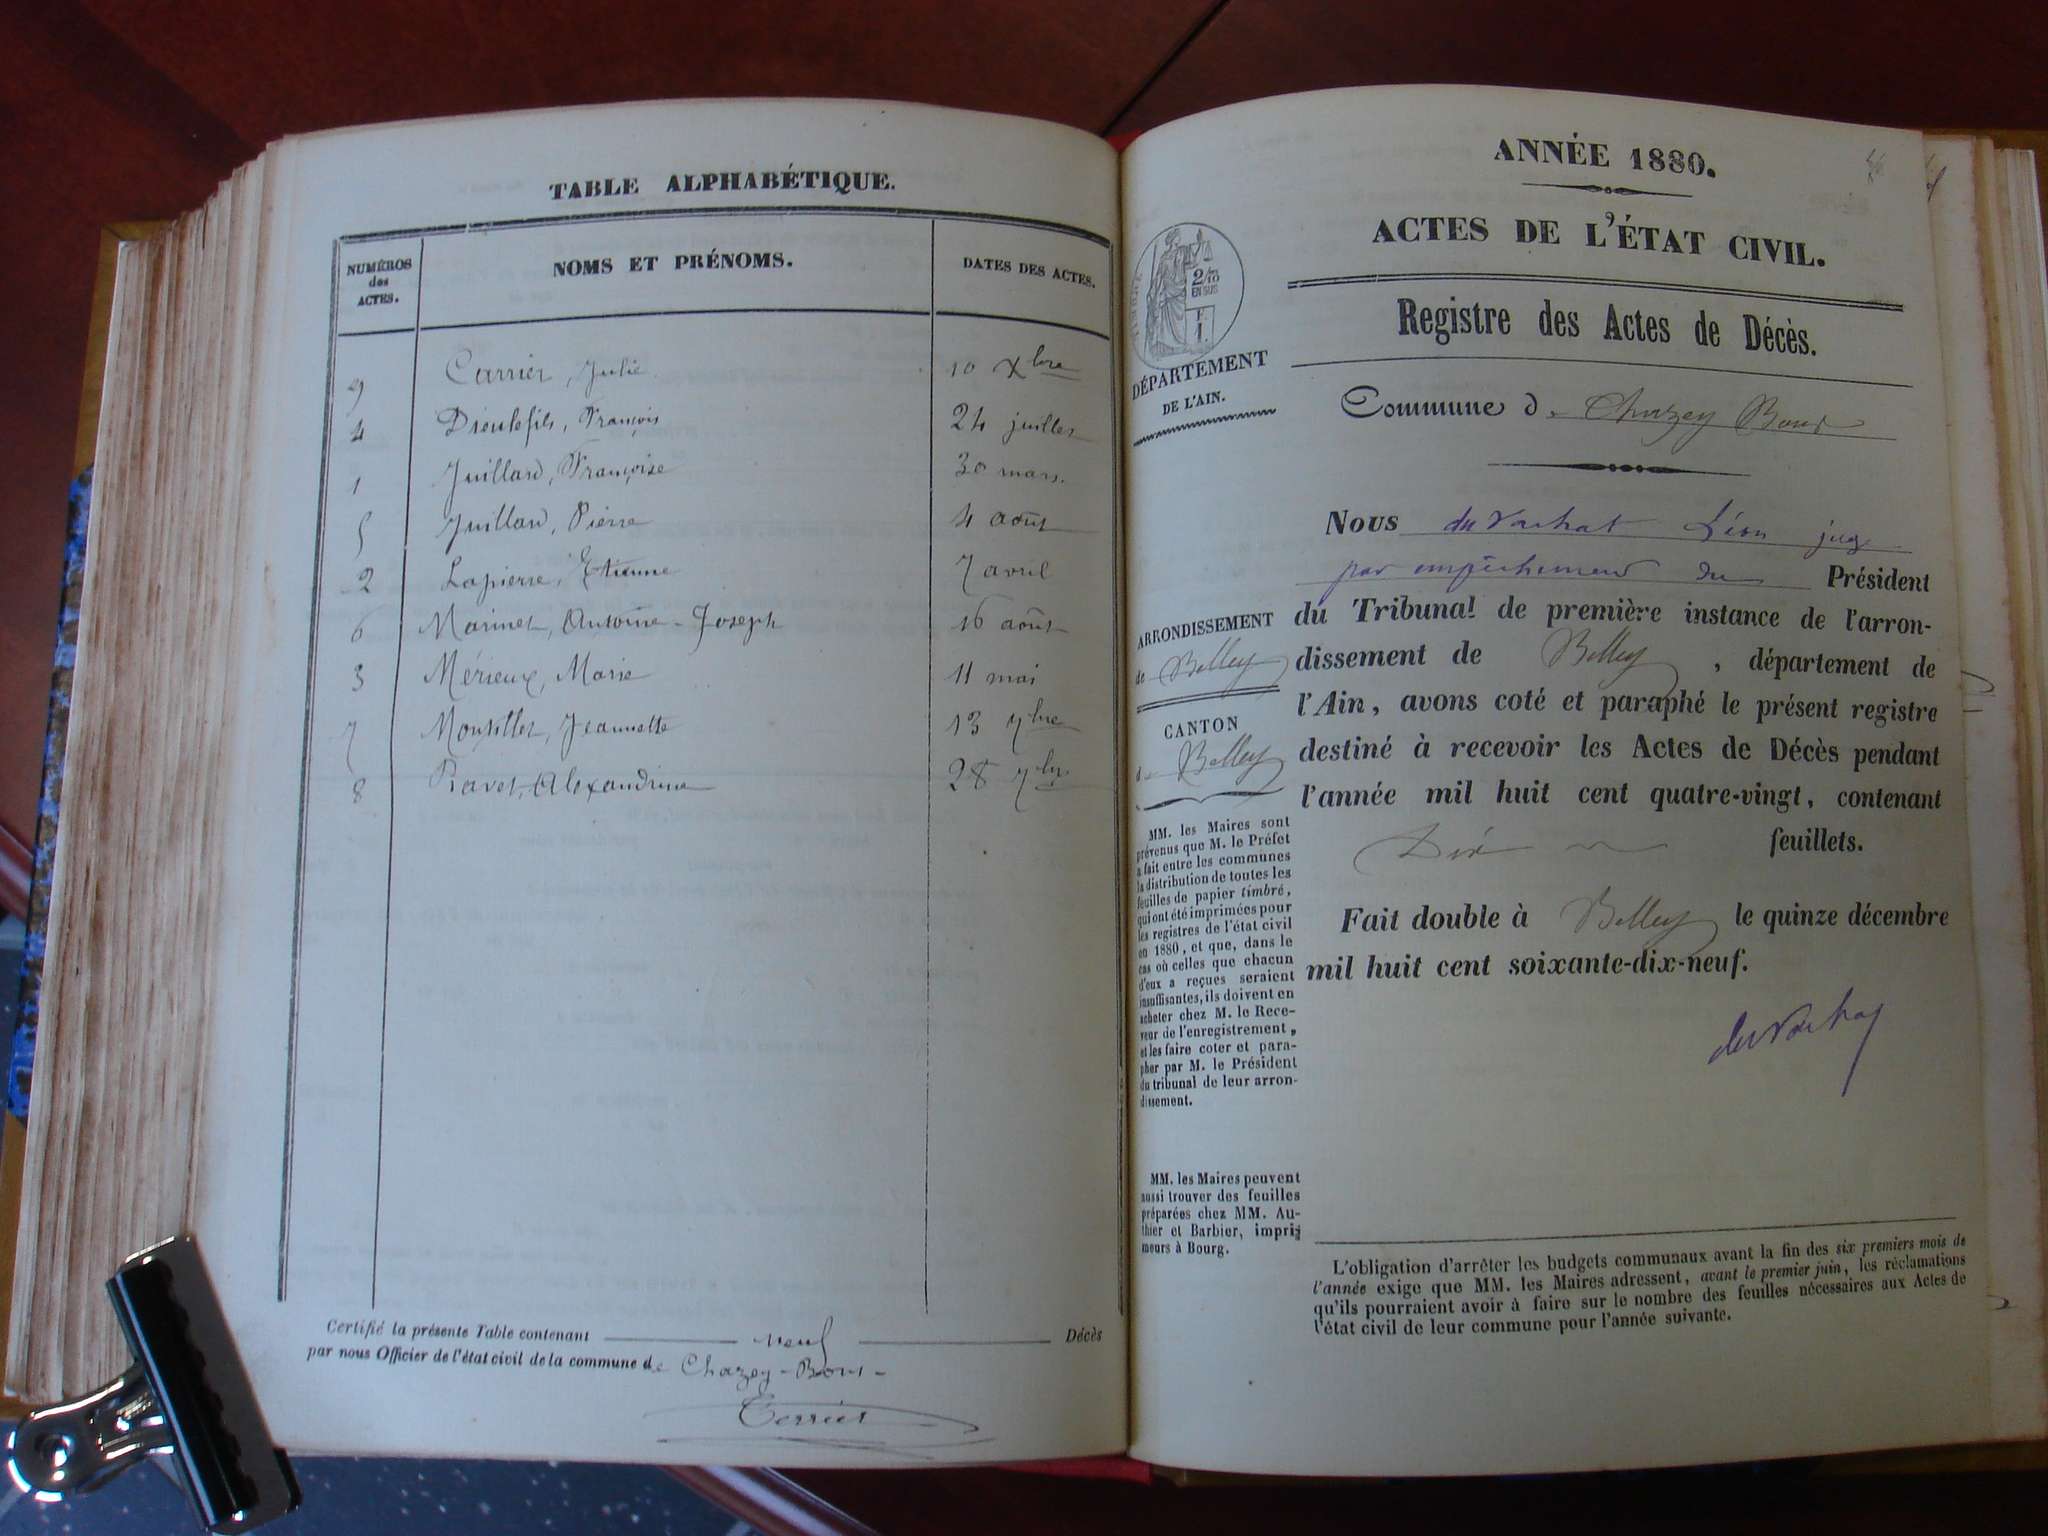 TABLE ALPHABÉTIQUE.
NUMÉROS des ACTES.
NOMS ET PRÉNOMS.
DATES DES ACTES.
9 Carrier, Julie 10 Xbre
4 Dieulefils, François 24 juillet
1 Juillard, Françoise 30 mars.
5 Juillard, Pierre 4 août
2 Lapierre, Etienne 7 avril
6 Marinet, Antoine-Joseph 16 août
3 Mérieux, Marie 11 mai
7 Jeannette 13 7bre
8 Ravet, Alexandrine 28 7bre
Certifié la présente Table contenant neuf Décès
par nous Officier de l'état civil de la commune de Chazey-Bons-
Terrier
ANNÉE 1880.
ACTES DE L'ÉTAT CIVIL.
Registre des Actes de Décès.
2/10
EN SUS
1.
DÉPARTEMENT
DE L'AIN.
Commune de Chazey Bons
Nous du Vachat Léon juge
par empêchement du Président
du Tribunal de première instance de l'arron-
dissement de Belley, département de
l'Ain, avons coté et paraphé le présent registre
destiné à recevoir les Actes de Décès pendant
l'année mil huit cent quatre-vingt, contenant
Dix feuillets.
Fait double à Belley le quinze décembre
mil huit cent soixante-dix-neuf.
du Vachat
ARRONDISSEMENT
de Belley
CANTON
de Belley
MM. les Maires sont
prévenus que M. le Préfet
a fait entre les communes
la distribution de toutes les
feuilles de papier timbré,
qui ont été imprimées pour
les registres de l'état civil
en 1880, et que, dans le
cas où celles que chacun
d'eux a reçues seraient
insuffisantes, ils doivent en
acheter chez M. le Rece-
veur de l'enregistrement,
et les faire coter et para-
pher par M. le Président
du tribunal de leur arron-
dissement.
MM. les Maires peuvent
aussi trouver des feuilles
préparées chez MM. Au-
thier et Barbier, impri-
meurs à Bourg.
L'obligation d'arrêter les budgets communaux avant la fin des six premiers mois de
l'année exige que MM. les Maires adressent, avant le premier juin, les réclamations
qu'ils pourraient avoir à faire sur le nombre des feuilles nécessaires aux Actes de
l'état civil de leur commune pour l'année suivante.